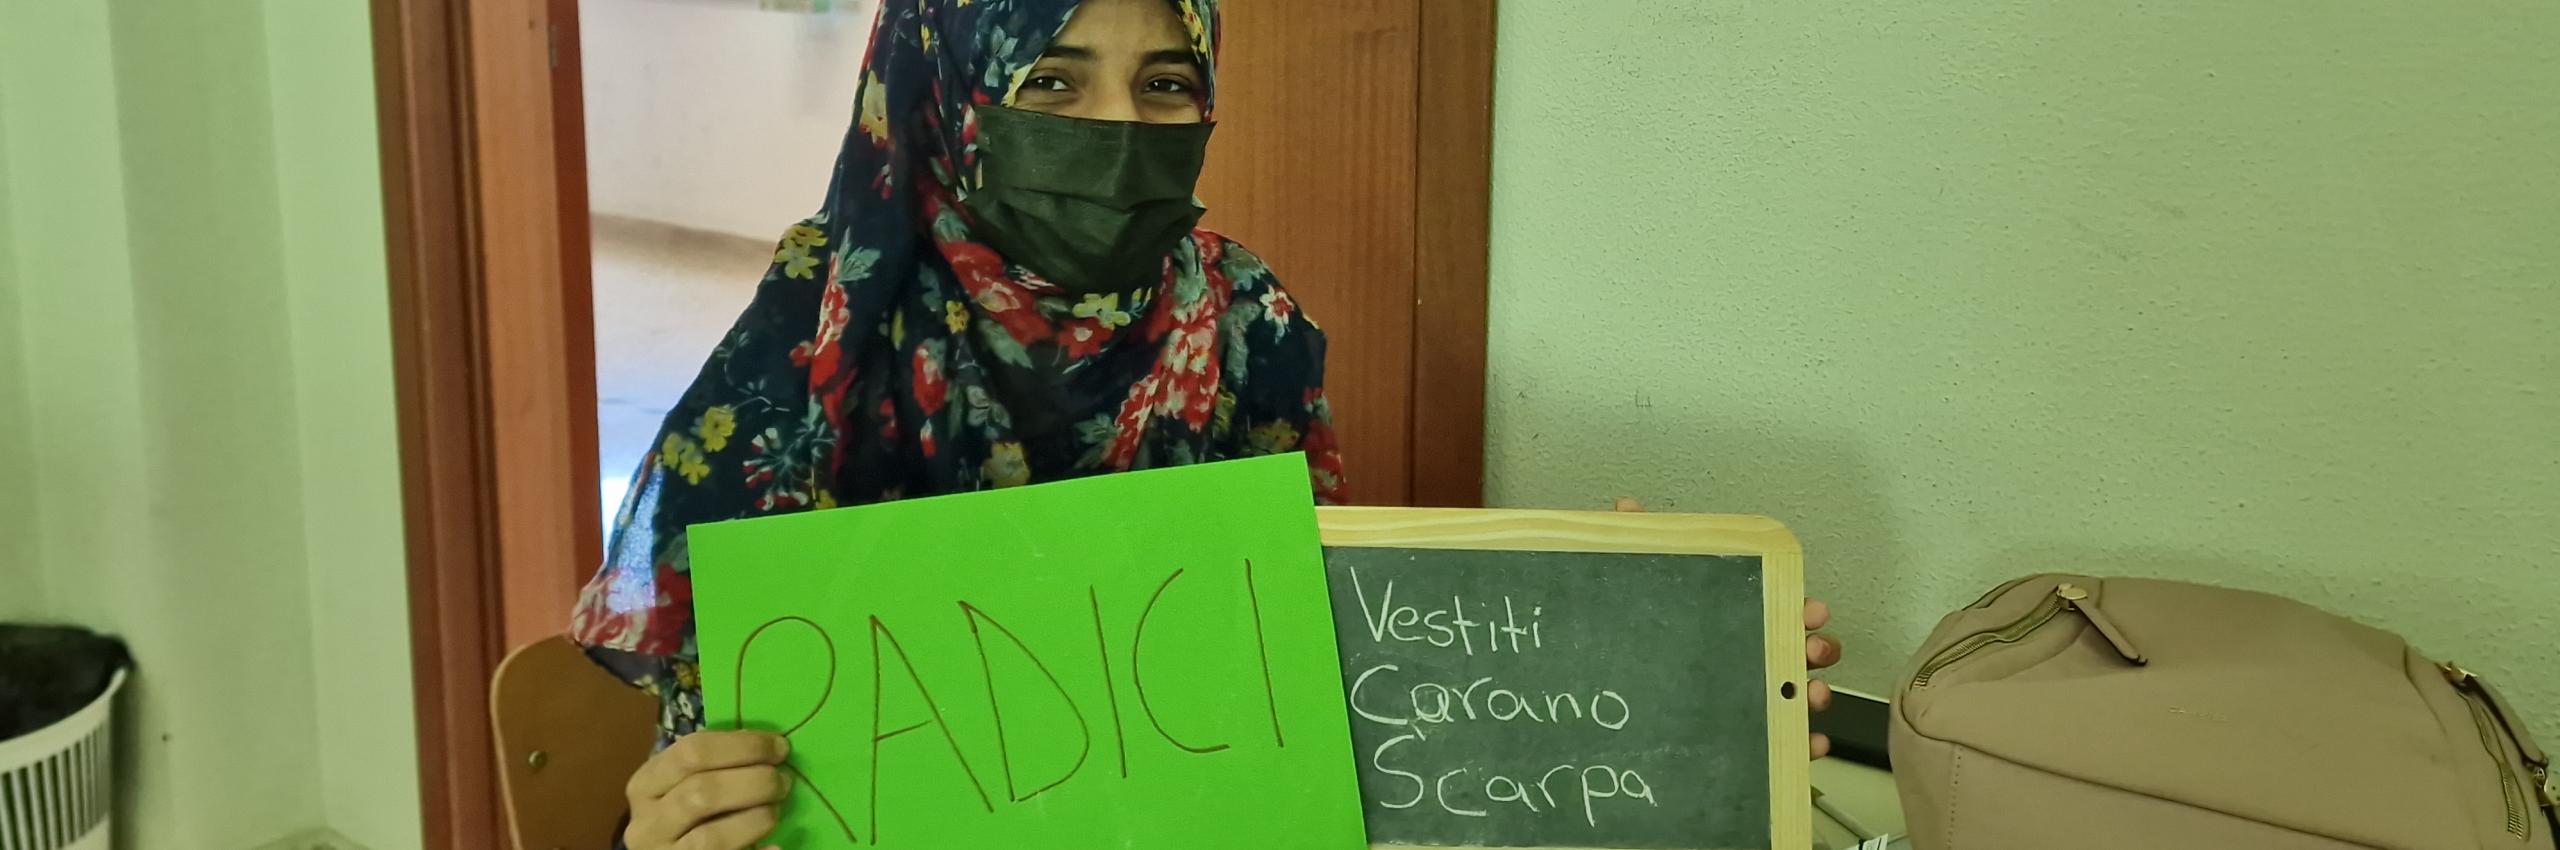 RADICI
Vestiti
Carano
Scarpa